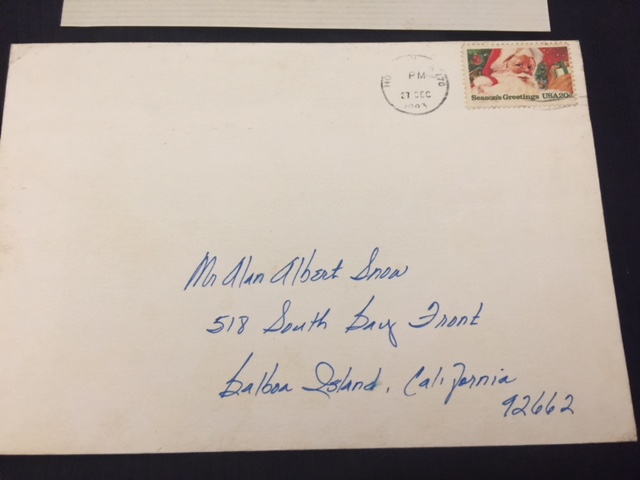 PM
27 DEC
Season's Greetings USA 20c
Mr Alan Albert Snow
518 South Bay Front
Balboa Island, California
92662